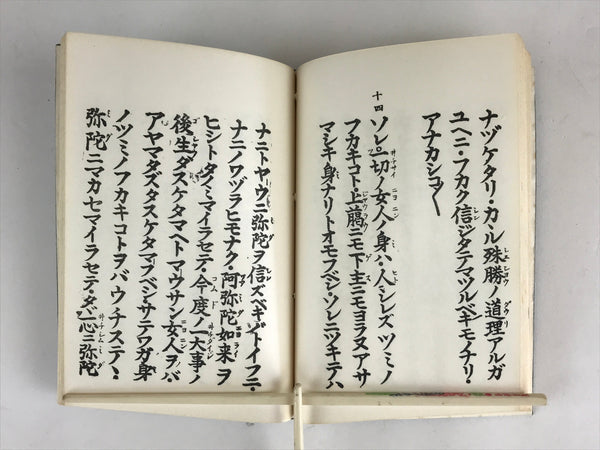 ナヅケタリ・カヽル殊勝ノ道理アルガ
ユヘニ・フカク信ジタテマツルベキモノナリ・
アナカシコ〳〵
十四
ソレ一切ノ女人ノ身ハ・人シレズツミノ
フカキコト・上臈ニモ下主ニモヨラヌアサ
マシキ身ナリトオモフベシ・ソレニツキテハ
ナニトヤウニ弥陀ヲ信ズベキゾトイフニ・
ナニノワヅラヒモナク・阿弥陀如来ヲ
ヒシトタノミマイラセテ・今度ノ一大事ノ
後生タスケタマヘトマウサン女人ヲバ・
アヤマタズタスケタマフベシ・サテワガ身
ノツミノフカキコトヲバウチステヽ・
弥陀ニマカセマイラセテ・タヾ一心ニ弥陀